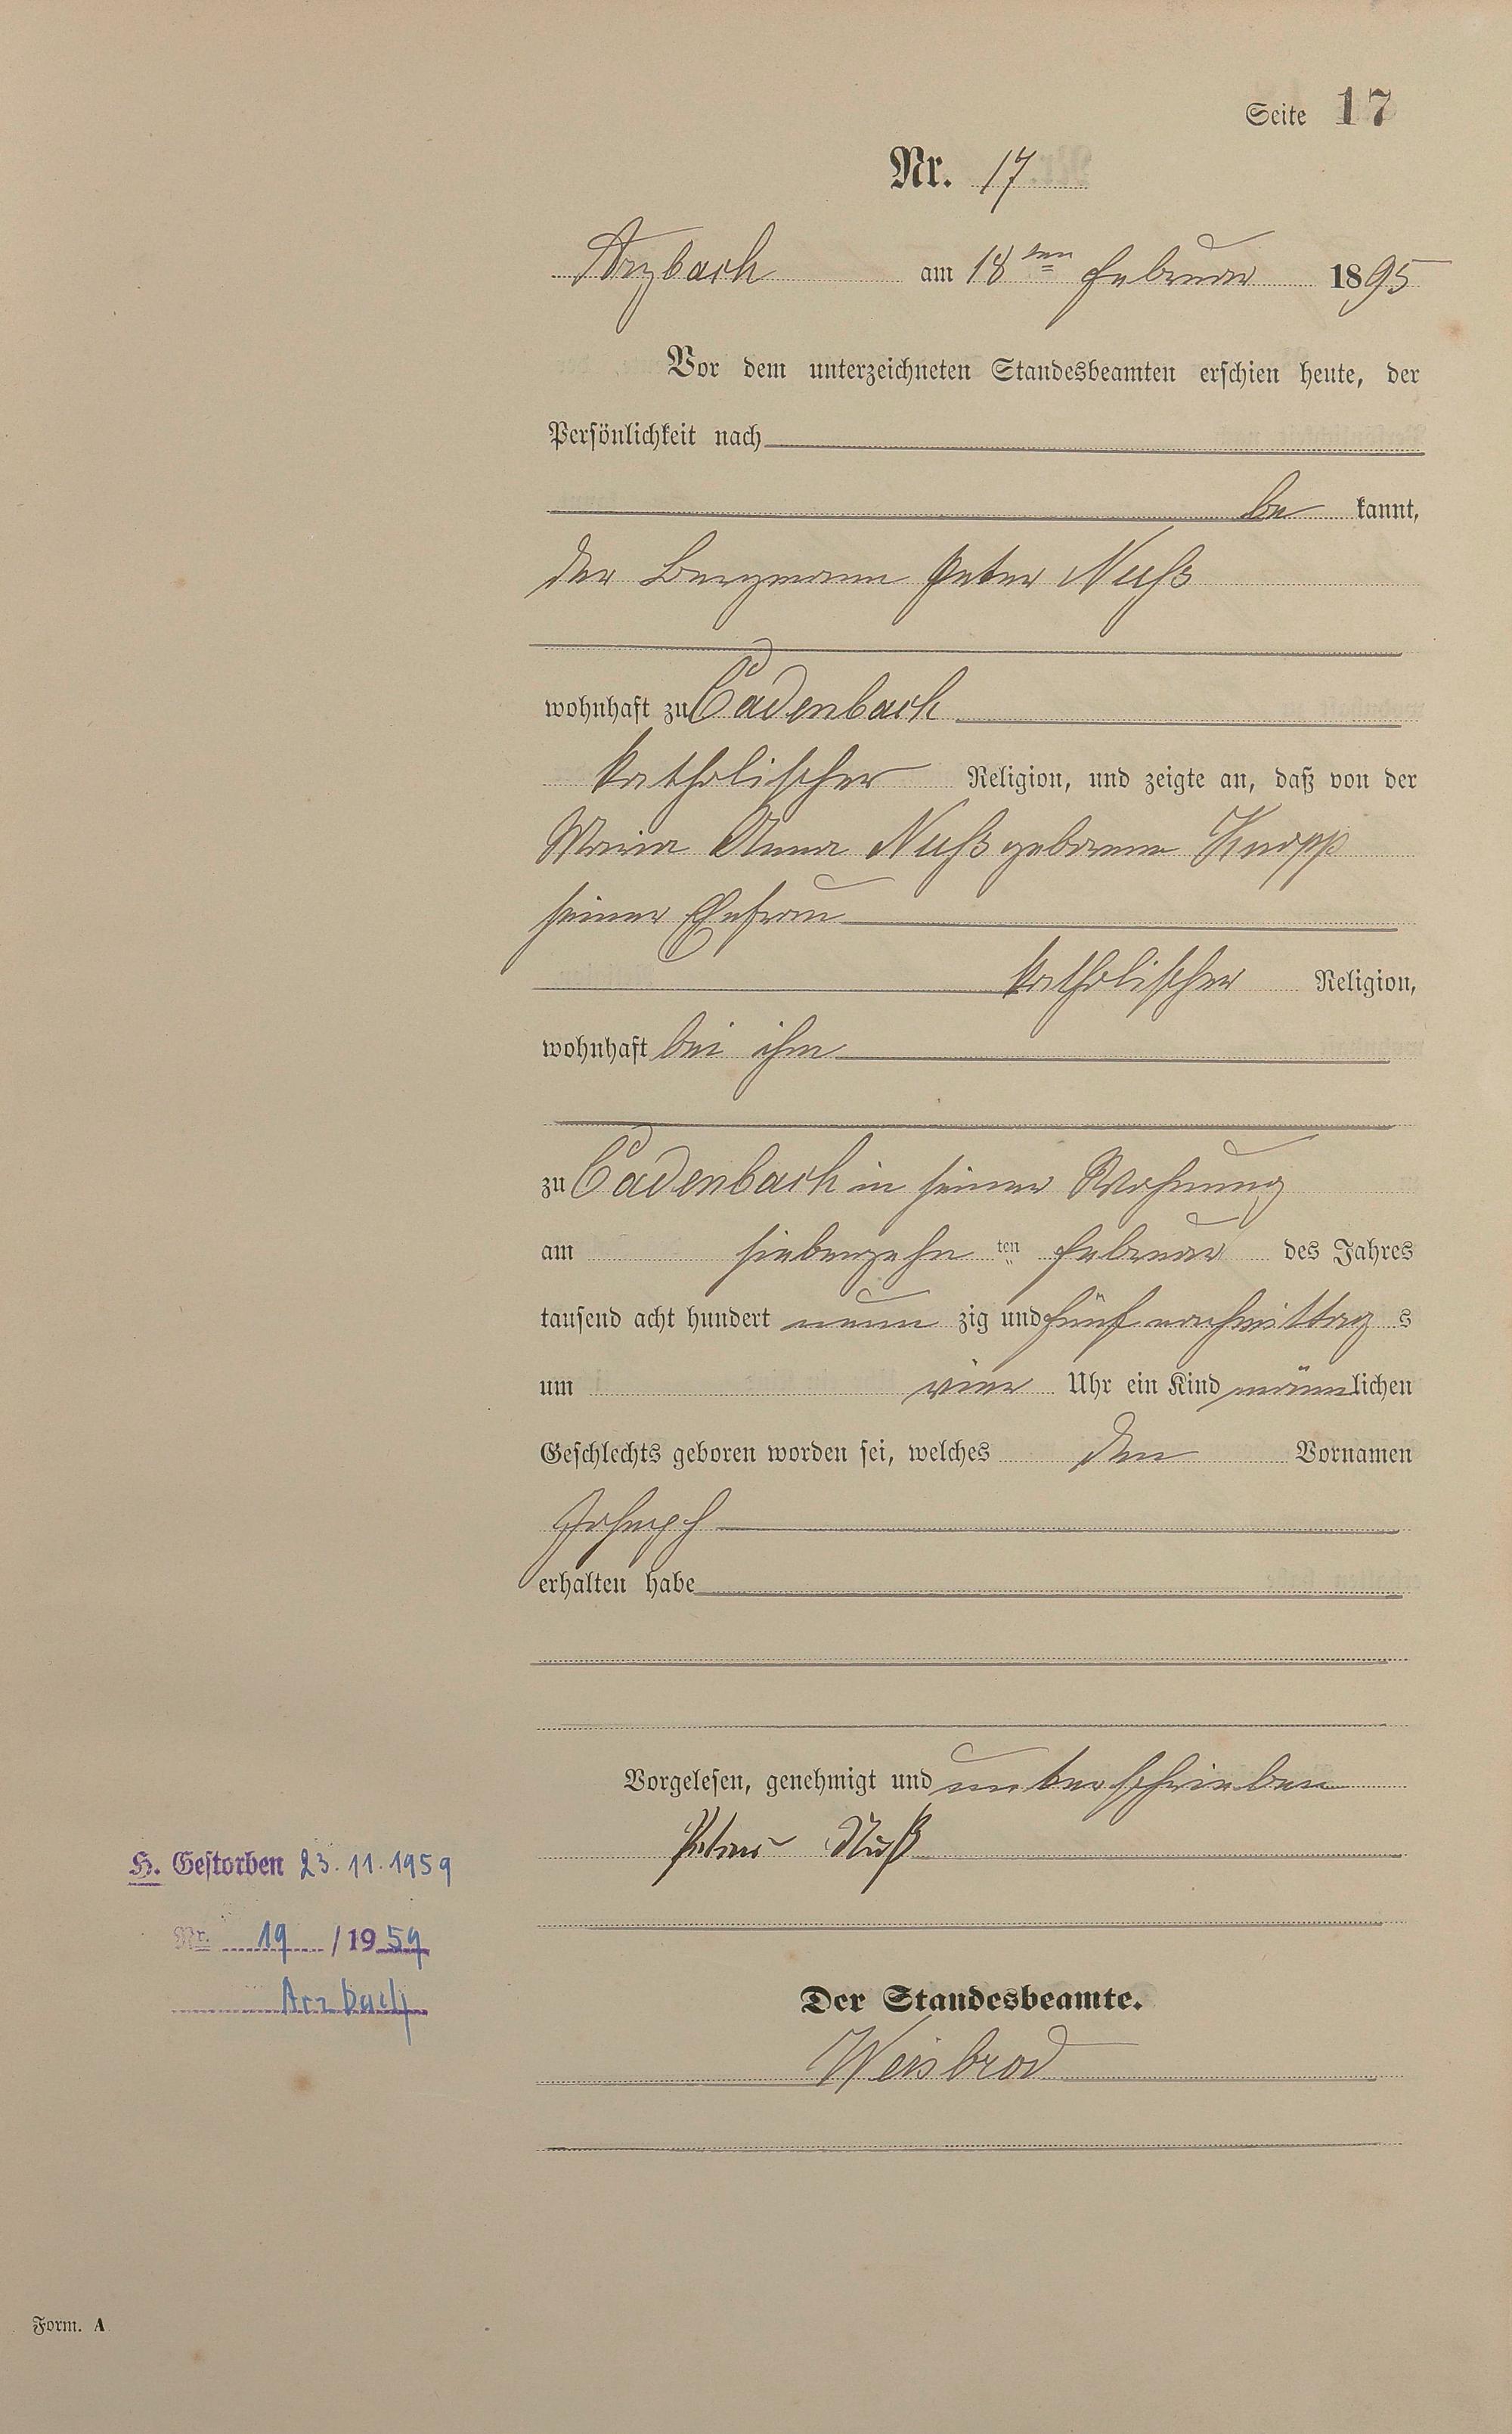 Seite 17
Nr. 17
Arzbach am 18ten Februar 1895
Vor dem unterzeichneten Standesbeamten erschien heute, der
Persönlichkeit nach
be kannt,
der Bergmann Peter Nuß
wohnhaft zu Cadenbach
katholischer Religion, und zeigte an, daß von der
Maria Anna Nuß geborene Knopp
seiner Ehefrau
katholischer Religion,
wohnhaft bei ihm
zu Cadenbach in seiner Wohnung
am siebenzehn ten Februar des Jahres
tausend acht hundert neun zig und fünf nachmittag s
um vier Uhr ein Kind männlichen
Geschlechts geboren worden sei, welches den Vornamen
Joseph
erhalten habe
Vorgelesen, genehmigt und unterschrieben
Peter Nuß
H. Gestorben 23.11.1959
Nr. 19 / 1959
Arzbach
Der Standesbeamte.
Weisbrod
Form. A